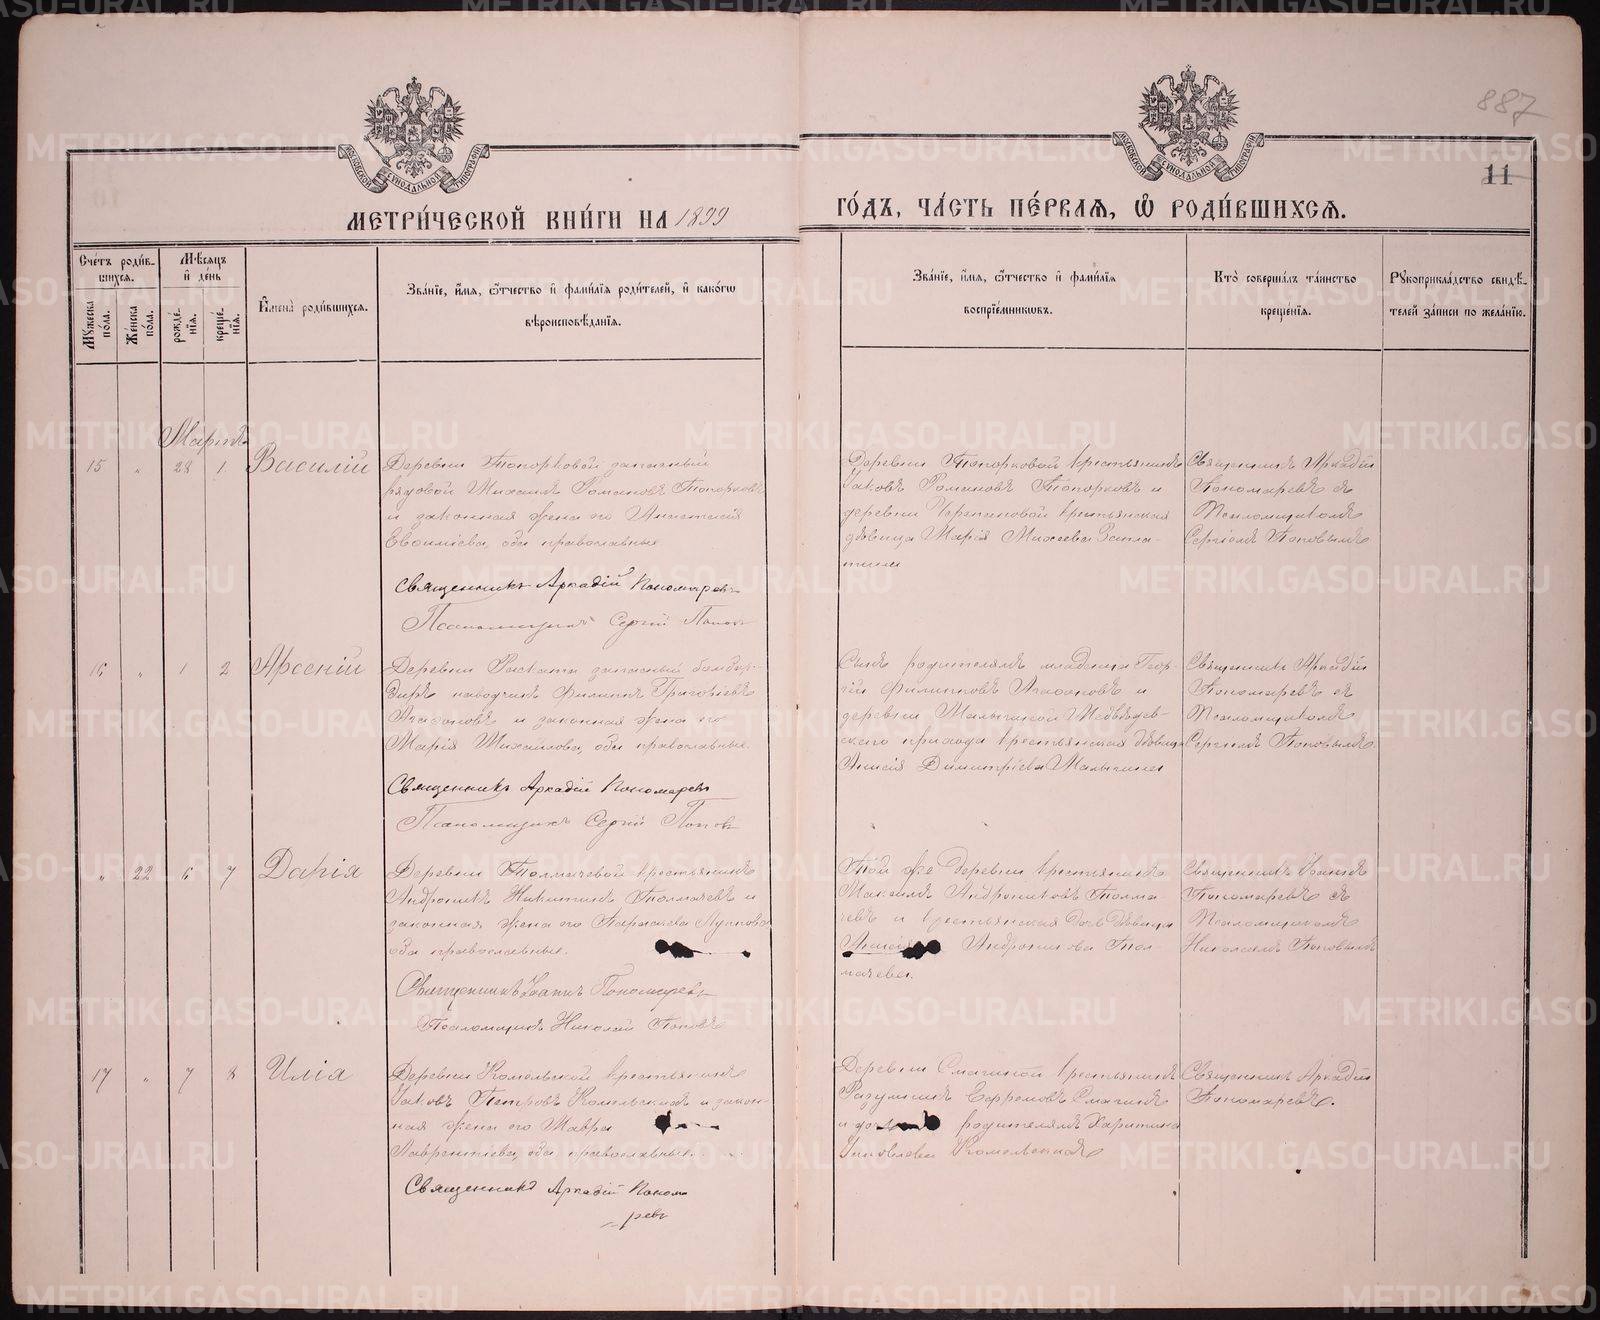 887
11
МОСКОВСКОЙ СѴНОДАЛЬНОЙ ТИПОГРАФІИ
МОСКОВСКОЙ СѴНОДАЛЬНОЙ ТИПОГРАФІИ
МЕТРИ́ЧЕСКОЙ КНИ́ГИ НА 1899
ГО́ДЪ, ЧА́СТЬ ПЕ́РВАЯ, Ѽ РОДИ́ВШИХСЯ.
Сче́тъ роди́в-
шихся.
Мѣ́сяцъ
и҆ де́нь
Мꙋ́жеска по́ла.
Же́нска по́ла.
рожде́нїя.
креще́нїя.
И҆мена̀ роди́вшихся.
Зва́нїе, и҆́мя, ѻ҆́тчество и҆ фами́лїя роди́телей, и҆ како́гѡ
вѣроисповѣ́данїя.
Зва́нїе, и҆́мя, ѻ҆́тчество и҆ фами́лїя
воспрїе́мникѡвъ.
Кто̀ соверша́лъ та́инство
креще́нїя.
Рꙋкоприкла́дство свидѣ́-
телей за́писи по жела́нїю.
Мартъ
15 „ 28 1 Василій
Деревни Топорковой запасный
рядовой Михаилъ Романовъ Топорковъ
и законная жена его Анастасія
Евѳиміева, оба православные
Священникъ Аркадій Пономаревъ
Псаломщикъ Сергій Поповъ
Деревни Топорковой крестьянинъ
Іаковъ Романовъ Топорковъ и
деревни Черепановой крестьянская
дѣвица Марія Михеева
Священникъ Аркадій
Пономаревъ съ
Псаломщикомъ
Сергіемъ Поповымъ
16 „ 1 2 Арсеній
Деревни Раската запасный бомбар-
диръ наводчикъ Филиппъ Григоріевъ
Агафоновъ и законная жена его
Марія Михайлова, оба православные.
Священникъ Аркадій Пономаревъ
Псаломщикъ Сергій Поповъ
Сынъ родителямъ младенца Геор-
гій Филипповъ Агафоновъ и
деревни Малыгиной Медвѣдев-
скаго прихода крестьянская дѣвица
Анисія Димитріева Малыгина
Священникъ Аркадій
Пономаревъ съ
Псаломщикомъ
Сергіемъ Поповымъ
„ 22 6 7 Дарія
Деревни Толмачевой крестьянинъ
Андроникъ Никитинъ Толмачевъ и
законная жена его Параскева Луппова
оба православные.
Священникъ Іоаннъ Пономаревъ
Псаломщикъ Николай Поповъ
Той же деревни крестьянинъ
Максимъ Андрониковъ Толма-
чевъ и крестьянская дочь дѣвица
Андроникова Тол-
мачева.
Священникъ Іоаннъ
Пономаревъ съ
Псаломщикомъ
Николаемъ Поповымъ
17 „ 7 8 Илія
Деревни Комельской крестьянинъ
Іаковъ Петровъ Комельскихъ и закон-
ная жена его Мавра
Лаврентіева, оба православные.
Священникъ Аркадій Понома
ревъ
Деревни Смагиной крестьянинъ
Ефремовъ Смагинъ
и родителямъ Харитина
Іаковлева Комельскихъ
Священникъ Аркадій
Пономаревъ.
METRIKI.GASO-URAL.RU